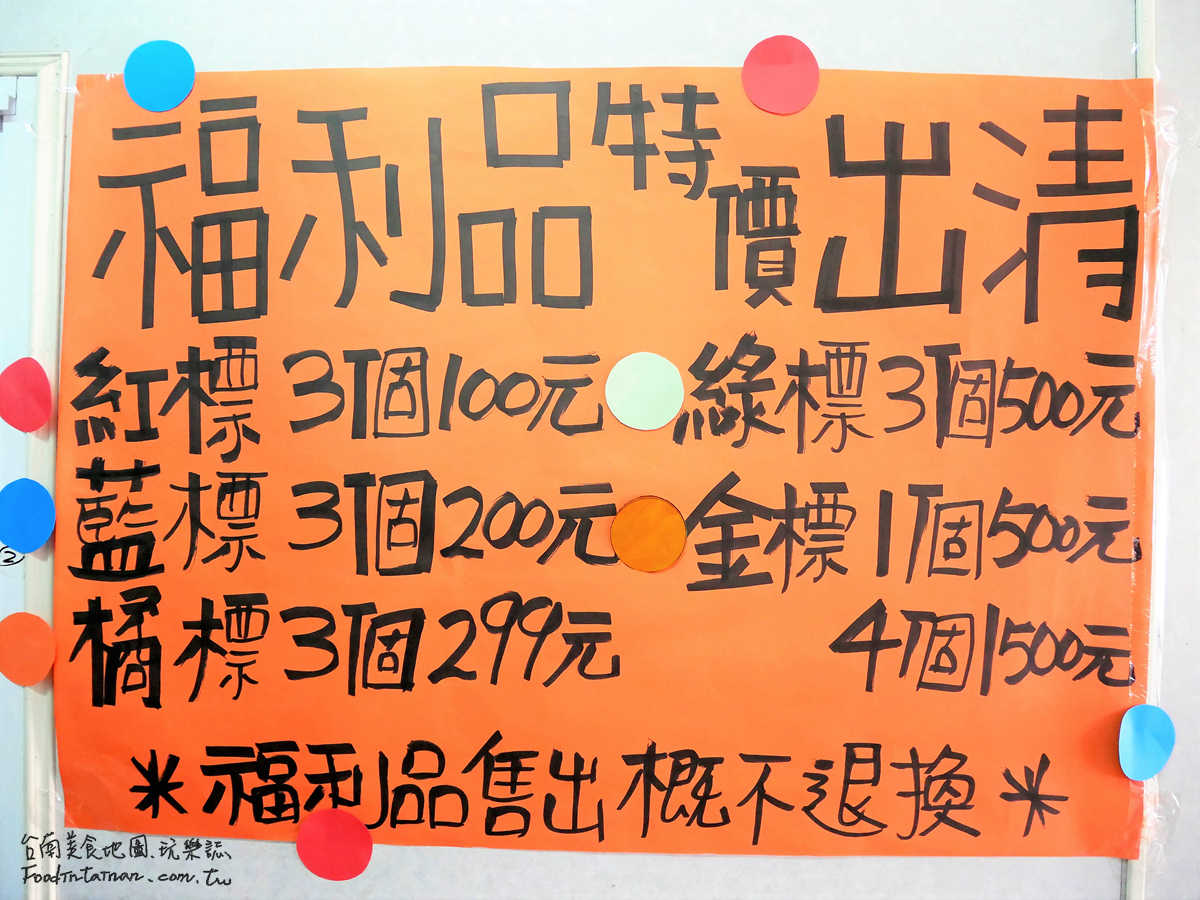 福利品特價出清
紅標3個100元
藍標3個200元
橘標3個299元
綠標3個500元
金標1個500元
4個1500元
*福利品售出概不退換*
②
台南美食地圖.玩樂誌
FoodInTainan.com.tw